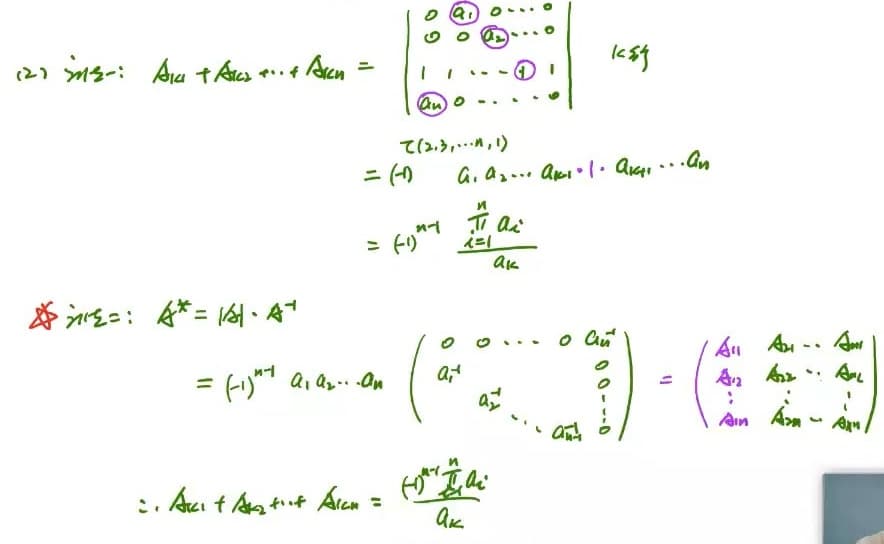 (2) 法一: A_{k1} + A_{k2} + ... + A_{kn} = | 0 a_1 0 ... 0
0 0 a_2 ... 0
1 1 ... 1 1
a_n 0 ... 0 | k行
= (-1)^{τ(2,3,...n,1)} a_1 a_2 ... a_{k-1} · 1 · a_{k+1} ... a_n
= (-1)^{n-1} \frac{\prod_{i=1}^{n} a_i}{a_k}
☆ 法二: A^* = |A| · A^{-1}
= (-1)^{n-1} a_1 a_2 ... a_n ( 0 0 ... 0 a_n^{-1} ; a_1^{-1} 0 ; a_2^{-1} 0 ; ... a_{n-1}^{-1} 0 ) = ( A_{11} A_{21} ... A_{n1} ; A_{12} A_{22} ... A_{n2} ; ⋮ ⋮ ⋮ ; A_{1n} A_{2n} ... A_{nn} )
∴ A_{k1} + A_{k2} + ... + A_{kn} = \frac{(-1)^{n-1} \prod_{i=1}^{n} a_i}{a_k}